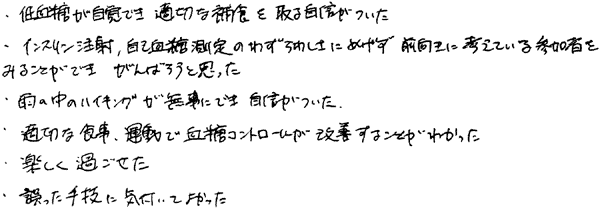 ・低血糖が自覚でき 適切な補食を取る自信がついた
・インスリン注射,自己血糖測定のわずらわしさにめげず 前向きに考えている参加者を
みることができ がんばろうと思った
・雨の中のハイキングが無事にでき 自信がついた.
・適切な食事、運動で血糖コントロールが改善することがわかった
・楽しく過ごせた
・誤った手技に気付いてよかった